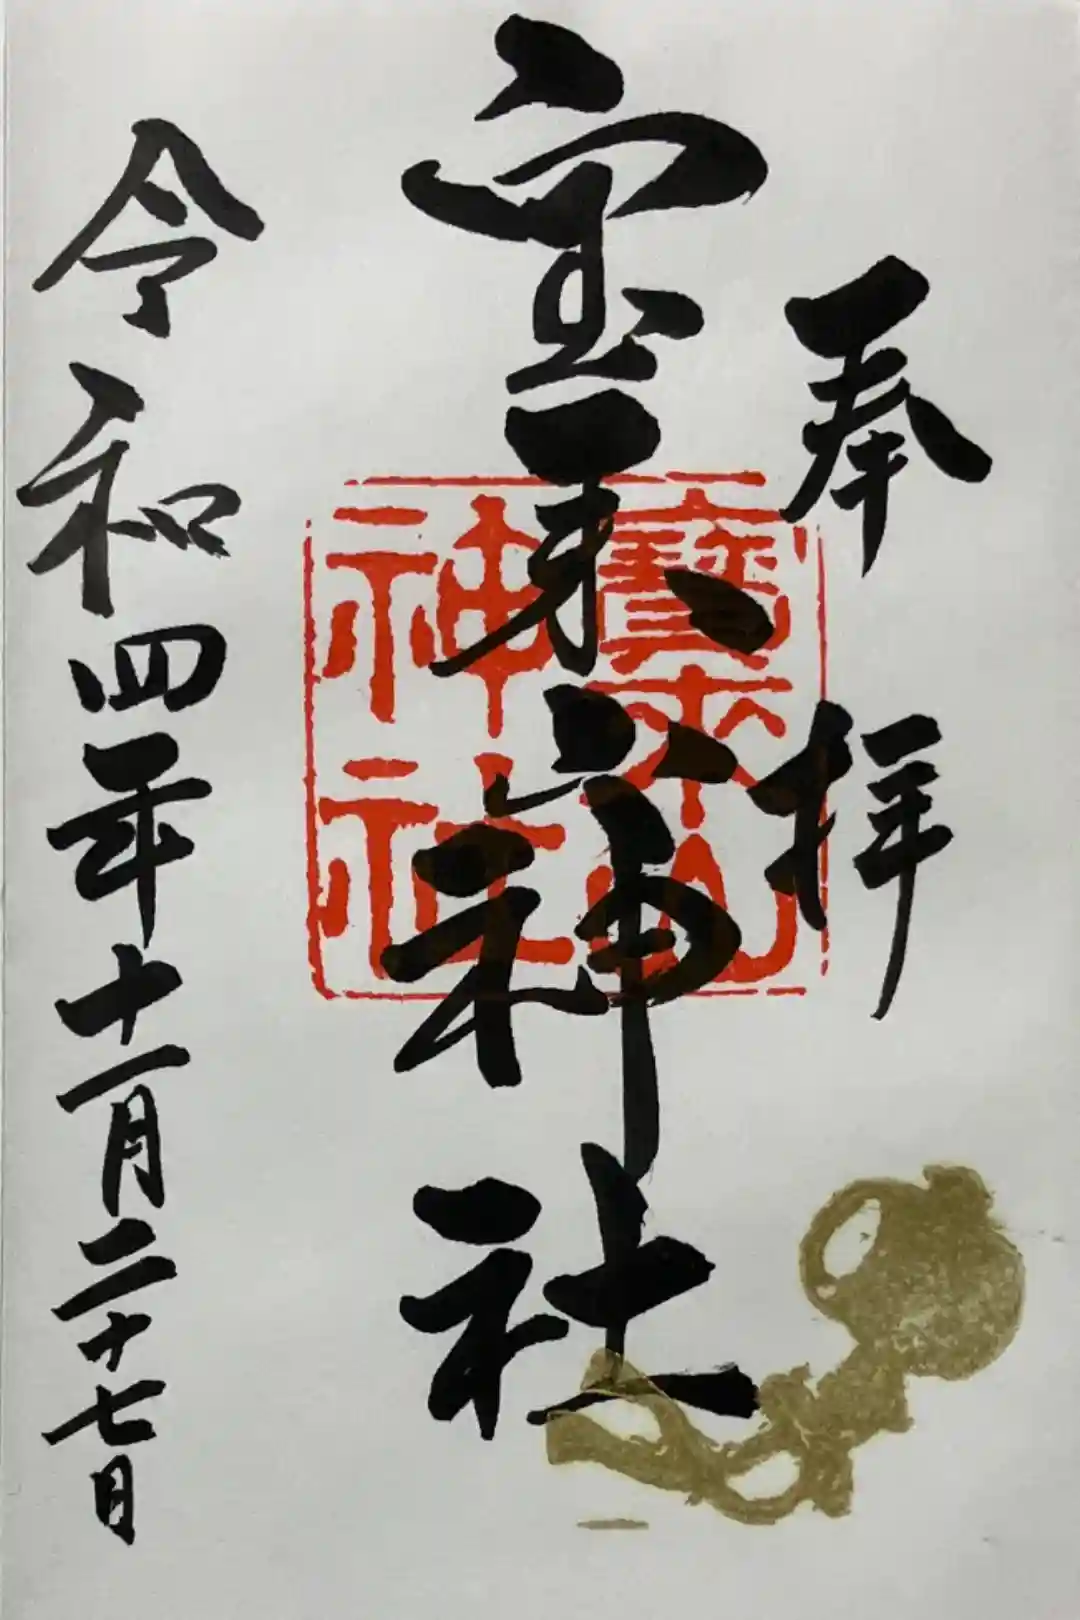 奉拝
宝来山神社
寶来山
神社
令和四年十一月二十七日